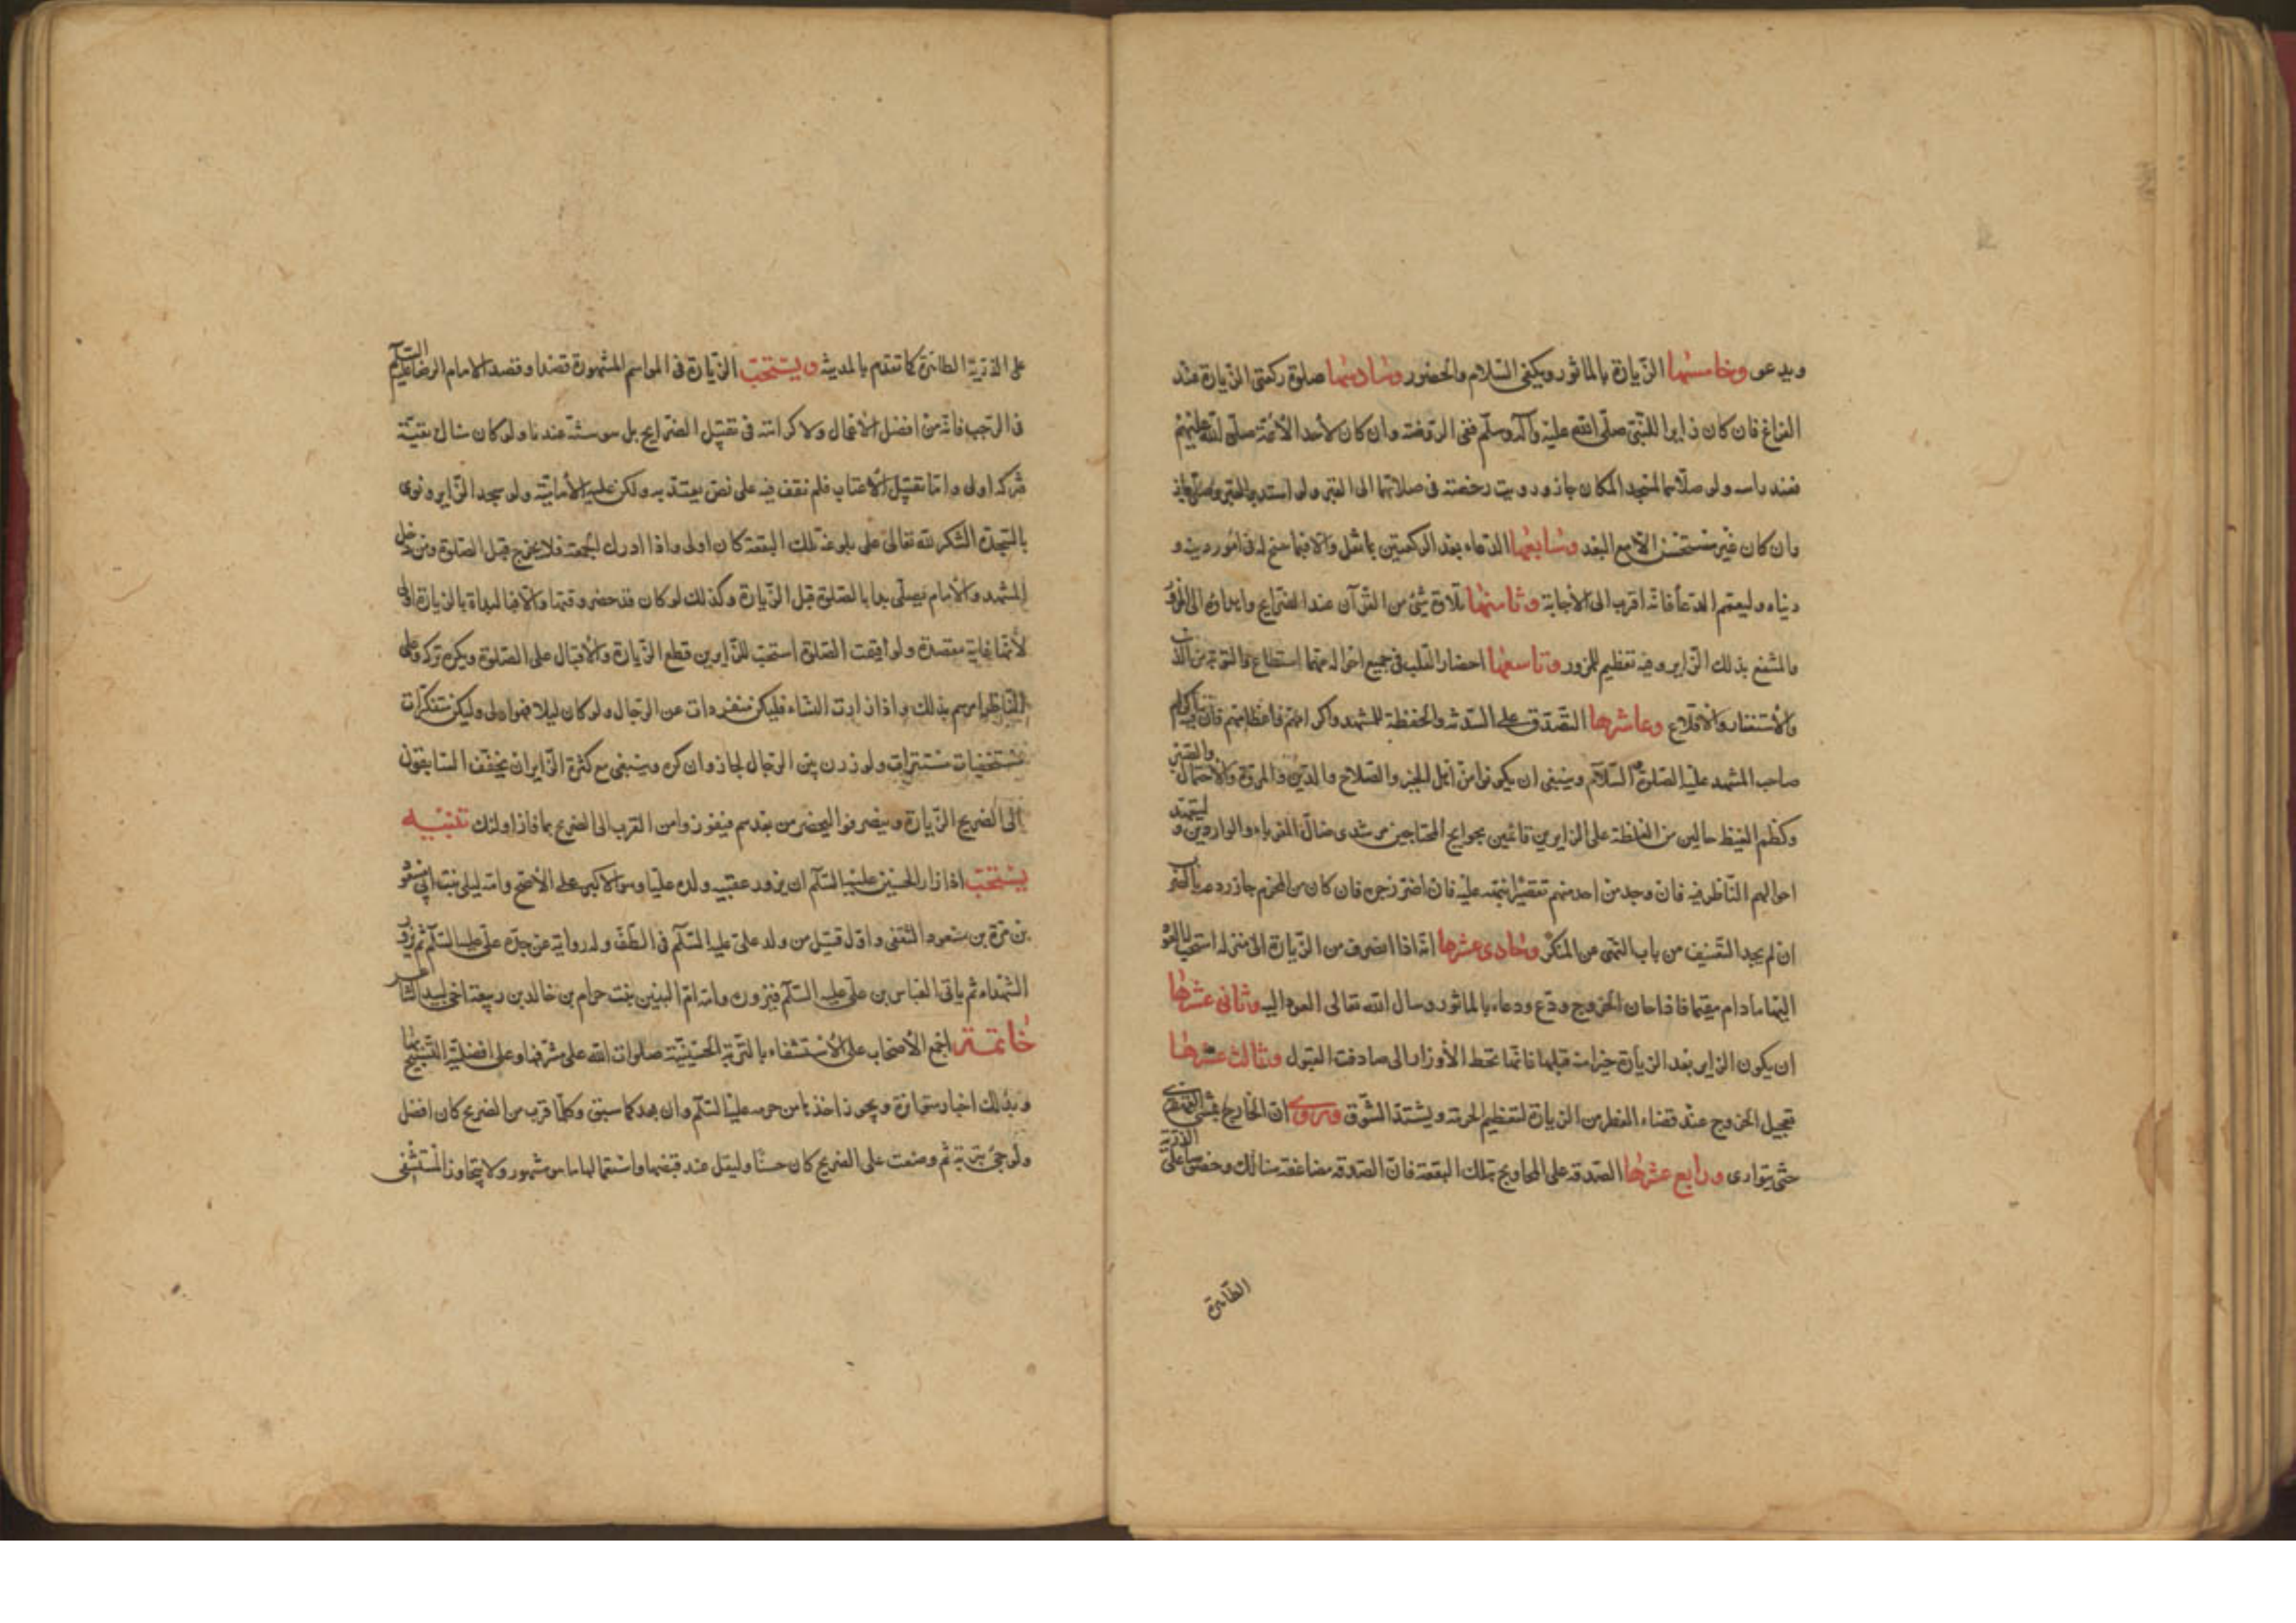 ويدعو وخامسها الزيارة بالماثور ويكفى السلام والحضور وسادسها صلوة ركعتى الزيارة عند
الفراغ فان كان زايرا للنبى صلى الله عليه وآله وسلم ففى الروضة وان كان لأحد الأئمة صلى الله عليهم
فعند راسه ولو صلاهما لمسجد المكان جاز ورويت رخصة فى صلاتهما الى القبر ولو استدبر القبر وصلى جاز
وان كان غير مستحسن الا مع البعد وسابعها الدعاء بعد الركعتين بما نقل والا فبما سنح له فى امور دينه و
دنياه وليعمم الدعأ فانه اقرب الى الأجابة وثامنها تلاوة شئ من القرآن عند الضرايح واهداؤه الى المزور
والمنتفع بذلك الزاير وفيه تعظيم للمزور وتاسعها احضار القلب فى جميع احواله مهما استطاع والتوبة من الذنب
والأستغفار والأقلاع وعاشرها التصدق على السدنه والحفظة للمشهد واكرامهم فاعظامهم فان فيه اكرام
صاحب المشهد عليه الصلوة والسلام وينبغى ان يكونوا من اهل الخير والصلاح والدين والمروة والأحتمال والصبر
وكظم الغيظ خالين من الغلظة على الزايرين قائمين بحوايج المحتاجين مرشدى ضال الغرباء والواردين وليتعهد
احوالهم الناظر فيه فان وجد من احد منهم تقصيرا نبهه عليه فان اصر زجره فان كان من المحرم جاز ردعه بالضرب
ان لم يجد التعنيف من باب النهى عن المنكر وحادى عشرها انه اذا انصرف من الزيارة الى منزله استحب له العود
اليها مادام مقيما فاذا حان الخروج ودع ودعاء بالماثور وسال الله تعالى العود اليه وثانى عشرها
ان يكون الزاير بعد الزيارة خيرا منه قبلها فانها تحط الأوزار الى صادفت القبول وثالث عشرها
تعجيل الخروج عند قضاء الوطر من الزيارة لتعظيم الحرمة ويشتد الشوق وروى ان الخارج يمشى القهقرى
حتى يتوارى ورابع عشرها الصدقه على المحاويج بتلك البقعة فان الصدقه مضاعفة هنالك وخصوصا على الذرية
الطاهرة
على الذرية الطاهرة كما تقدم بالمدينة ويستحب الزيارة فى المواسم المشهورة قصدا وقصد الامام الرضا عليه السلام
فى الرجب فانه من افضل الأعمال ولا كراهة فى تقبيل الضرايح بل هو سنة عندنا ولو كان هناك تقية
فتركه اولى واما تقبيل الأعتاب فلم نقف فيه على نص يعتد به ولكن عليه الأمامية ولو سجد الزاير ونوى
بالسجدة الشكر لله تعالى على بلوغه تلك البقعة كان اولى واذا ادرك الجمعة فلا يخرج قبل الصلوة ومن دخل
المشهد والأمام يصلى بدا بالصلوة قبل الزيارة وكذلك لو كان قد حضر وقتها والا فالبداة بالزيارة اولى
لأنها غاية مقصده ولو أقيمت الصلوة استحب للزايرين قطع الزيارة والأقبال على الصلوة ويكره تركه وعلى
الناظر امرهم بذلك واذا زارت النساء فليكن منفردات عن الرجال ولو كان ليلا فهو اولى وليكن متنكرات
مستخفيات مستترات ولو زرن بين الرجال لجاز وان كره وينبغى مع كثرة الزاير ان يخفف السابقون
الى الضريح الزيارة وينصرفوا ليحضر من بعدهم فيفوزوا من القرب الى الضريح بما فاز اولئك تنبيه
يستحب اذا زار الحسين عليه السلام ان يزور عقيبه ولده عليا وهو الاكبر على الأصح وامه ليلى بنت ابى مسعود
بن مرة بن مسعود الثقفى واول قتيل من ولد على عليه السلام فى الطف وله رواية عن جده على عليه السلام ثم يزور
الشهداء ثم ياتى العباس بن على عليه السلام فيزوره وامه ام البنين بنت حرام بن خالد بن ربيعة اخى لبيد الشاعر
خاتمة اجمع الأصحاب على الأستشفاء بالتربة الحسينية صلوات الله على مشرفها وعلى افضلية التسبيح بها
وبذلك اخبار متواترة ويجوز اخذها من حرمه عليه السلام وان بعد كما سبق وكلما قرب من الضريح كان افضل
ولو جئ بتربة ثم وضعت على الضريح كان حسنا وليقل عند قبضها واستعمالها ما هو مشهور ولا يتجاوز المستشفى